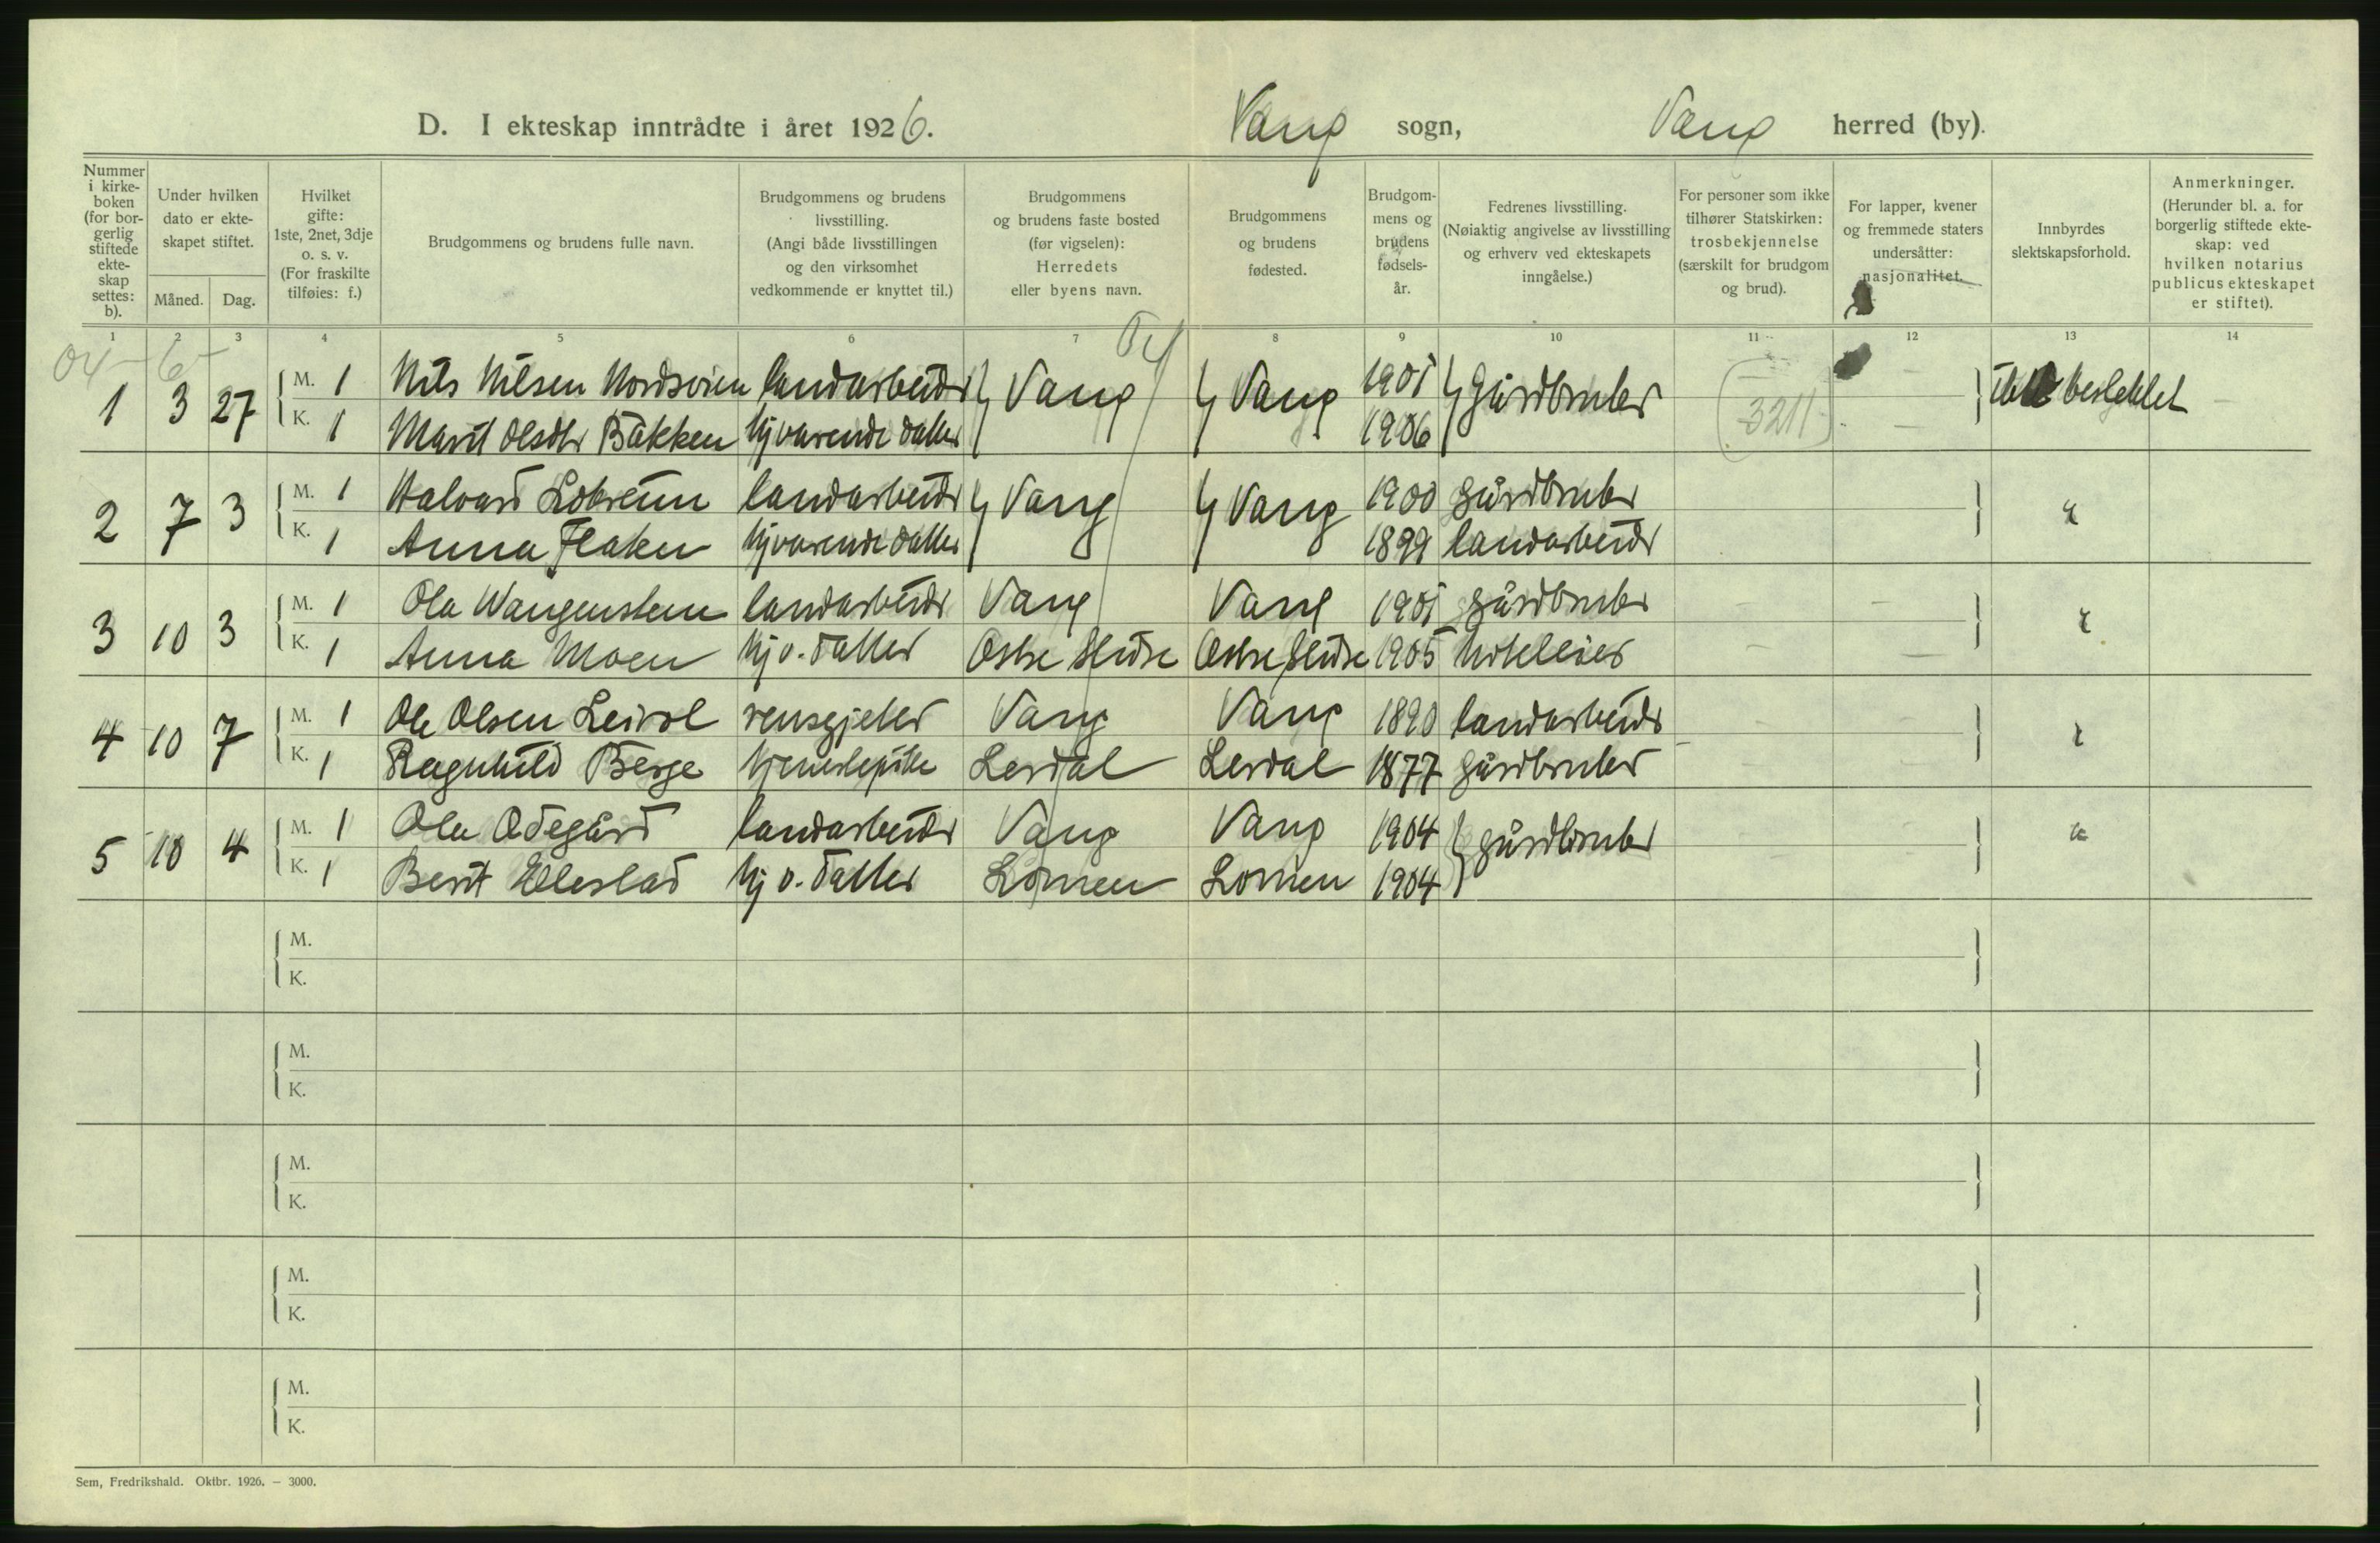 D. I ekteskap inntrådte i året 1926. Vang sogn, Vang herred (by).
Nummer i kirke-boken (for bor-gerlig stiftede ekte-skap settes: b).
Under hvilken dato er ekte-skapet stiftet.
Måned. Dag.
Hvilket gifte: 1ste, 2net, 3dje o. s. v. (For fraskilte tilføies: f.)
Brudgommens og brudens fulle navn.
Brudgommens og brudens livsstilling. (Angi både livsstillingen og den virksomhet vedkommende er knyttet til.)
Brudgommens og brudens faste bosted (før vigselen): Herredets eller byens navn.
Brudgommens og brudens fødested.
Brudgom-mens og brudens fødsels-år.
Fedrenes livsstilling. (Nøiaktig angivelse av livsstilling og erhverv ved ekteskapets inngåelse.)
For personer som ikke tilhører Statskirken: trosbekjennelse (særskilt for brudgom og brud).
For lapper, kvener og fremmede staters undersåtter: nasjonalitet.
Innbyrdes slektskapsforhold.
Anmerkninger. (Herunder bl. a. for borgerlig stiftede ekte-skap: ved hvilken notarius publicus ekteskapet er stiftet).
1 2 3 4 5 6 7 8 9 10 11 12 13 14
04 - 6 - 04
1 3 27 M. 1 Nils Nilsen landarbeider Vang Vang 1901 Gårdbruker 3211 beslektet
K. 1 Marit Olsdtr Bakken hjværende datter 1906
2 7 3 M. 1 Halvard landarbeider Vang Vang 1900 gårdbruker "
K. 1 Anna Flaten hjværende datter 1899 landarbeider
3 10 3 M. 1 Ola Wangensteen landarbeider Vang Vang 1901 gårdbruker "
K. 1 Anna Moen hj v. datter Østre Slidre Østre Slidre 1905 hotelleier
4 10 7 M. 1 Ole Olsen Leirol rensgjeter Vang Vang 1890 landarbeider "
K. 1 Ragnhild Berge tjenestepike Lerdal Lerdal 1877 gårdbruker
5 10 4 M. 1 Ola Ødegård landarbeider Vang Vang 1904 gårdbruker "
K. 1 Berit Ellestad hj v. datter Lomen Lomen 1904
M.
K.
M.
K.
M.
K.
M.
K.
M.
K.
Sem, Fredrikshald. Oktbr. 1926. — 3000.